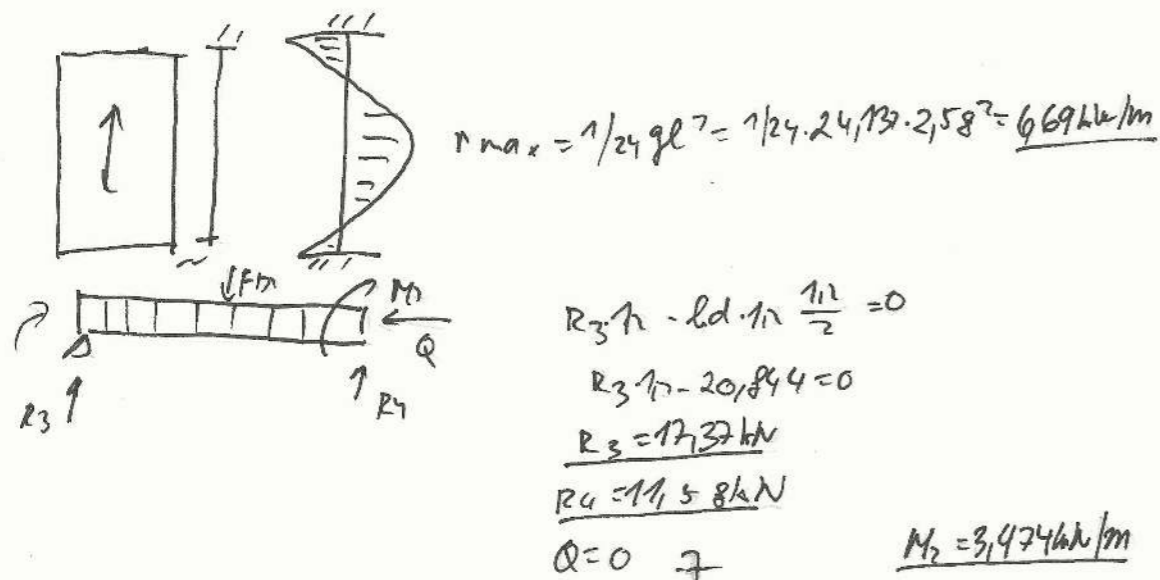 rmax = 1/24 gl² = 1/24·24,137·2,58² = 6,69 kN/m
Fm
M2
Q
R3
R4
R3·1,2 - ld·1,2 1,2/2 = 0
R3·1,2 - 20,844 = 0
R3 = 17,37 kN
R4 = 11,58 kN
Q = 0
M2 = 3,474 kN/m